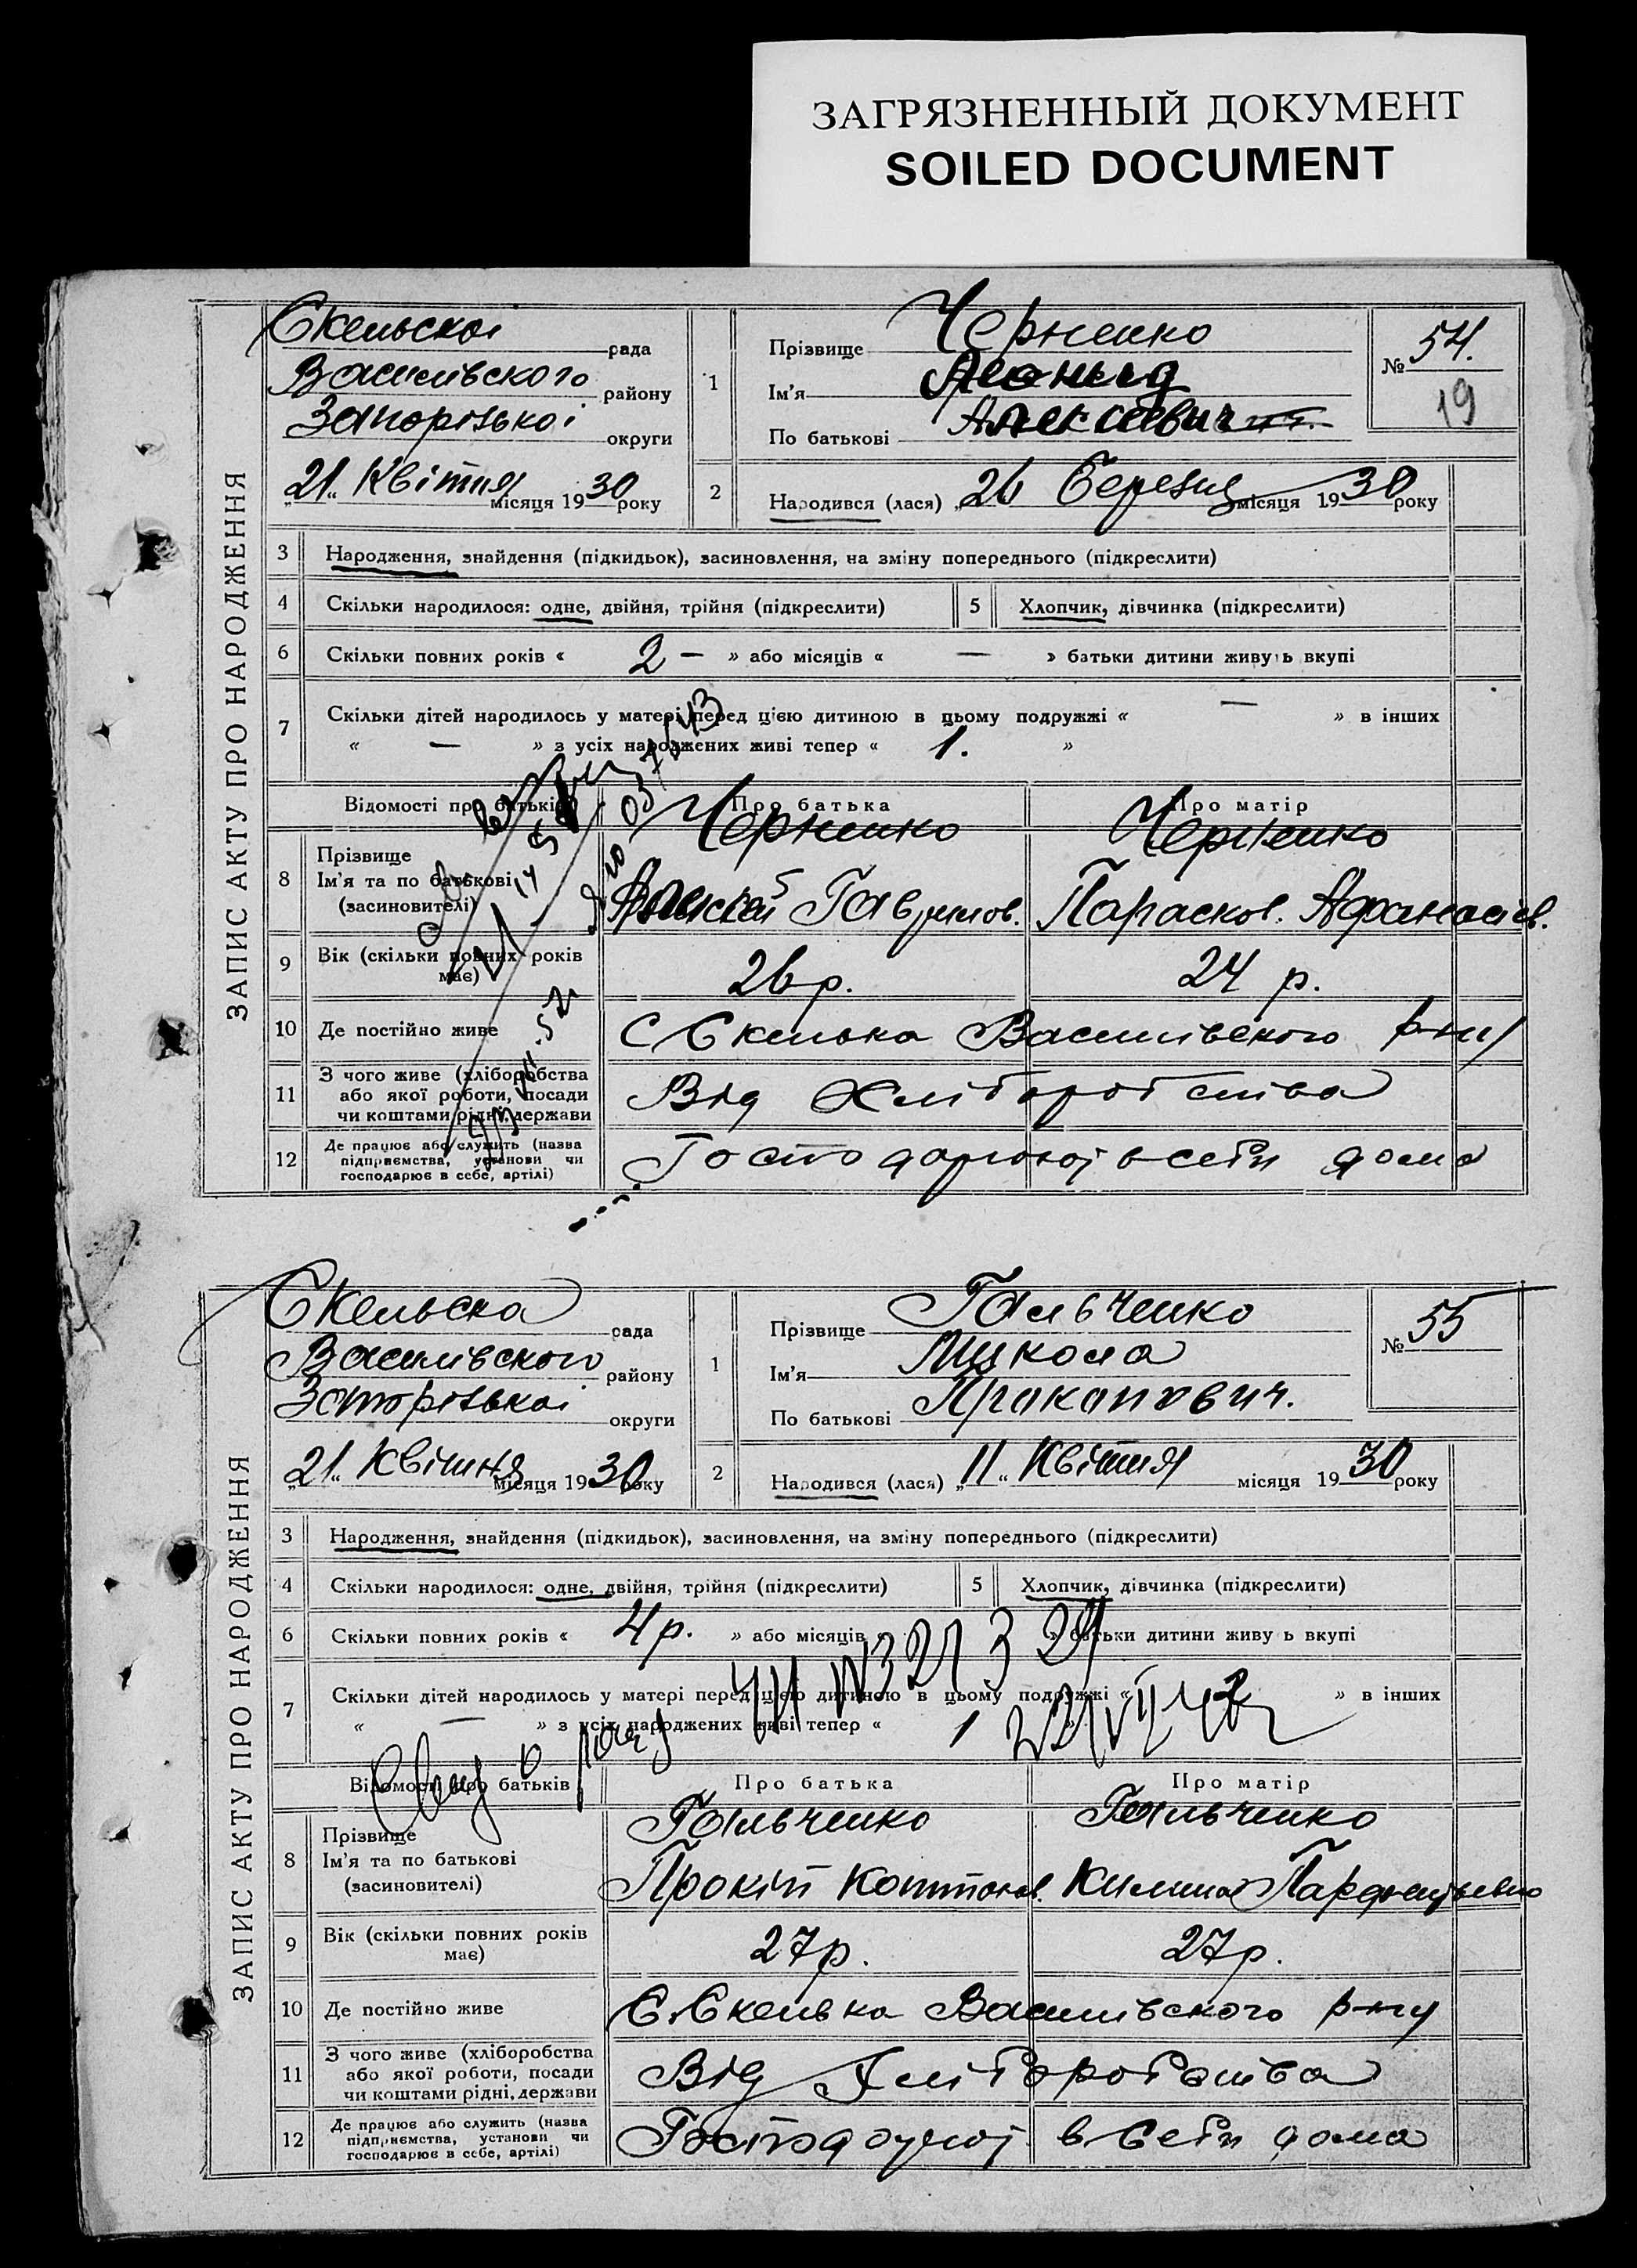 ЗАГРЯЗНЕННЫЙ ДОКУМЕНТ
SOILED DOCUMENT
ЗАПИС АКТУ ПРО НАРОДЖЕННЯ
Скельскоі рада
Василивского району
Запорізькоі округи
„21“ Квітня місяця 1930 року
1
Прізвище Черненко
Ім'я Леонид
По батькові Алексієвич
№ 54.
19
2
Народився (лася) „26 Березня місяця 1930 року
3 Народження, знайдення (підкидьок), засиновлення, на зміну попереднього (підкреслити)
4 Скільки народилося: одне, двійня, трійня (підкреслити) 5 Хлопчик, дівчинка (підкреслити)
6 Скільки повних років « 2 — » або місяців « — » батьки дитини живуть вкупі
7 Скільки дітей народилось у матері перед цією дитиною в цьому подружжі « — » в інших
« — » з усіх народжених живі тепер « 1. »
Відомості про батьків Про батька Про матір
8 Прізвище Ім'я та по батькові (засновителі)
Черненко Черненко
Алексей Гаврилов. Парасков. Афанасієв.
9 Вік (скільки повних років має) 26 р. 24 р.
10 Де постійно живе С Скелька Василівского р-ну
11 З чого живе (хліборобства
або якої роботи, посади
чи коштами рідні, держави
Від Хліборобства
12 Де працює або служить (назва
підприємства, установи чи
господарює в себе, артілі)
Господарюют в себи дома
ЗАПИС АКТУ ПРО НАРОДЖЕННЯ
Скельска рада
Василивского району
Запорізькоі округи
„21“ Квітня місяця 1930 року
1
Прізвище Гальченко
Ім'я Микола
По батькові Пракапович.
№ 55
2
Народився (лася) „11“ Квітня місяця 1930 року
3 Народження, знайдення (підкидьок), засиновлення, на зміну попереднього (підкреслити)
4 Скільки народилося: одне, двійня, трійня (підкреслити) 5 Хлопчик, дівчинка (підкреслити)
6 Скільки повних років « 4 р. » або місяців « » батьки дитини живу ь вкупі
7 Скільки дітей народилось у матері перед цією дитиною в цьому подружжі « » в інших
« — » з усіх народжених живі тепер « 1 »
Відомості про батьків Про батька Про матір
8 Прізвище
Ім'я та по батькові
(засиновителі)
Гальченко Гальченко
Прокіп
9 Вік (скільки повних років має) 27 р. 27 р.
10 Де постійно живе С. Скелька Василівского р-ну
11 З чого живе (хліборобства
або якої роботи, посади
чи коштами рідні, держави
Від Хліборобства
12 Де працює або служить (назва
підприємства, установи чи
господарює в себе, артілі)
Господарюют в себи дома